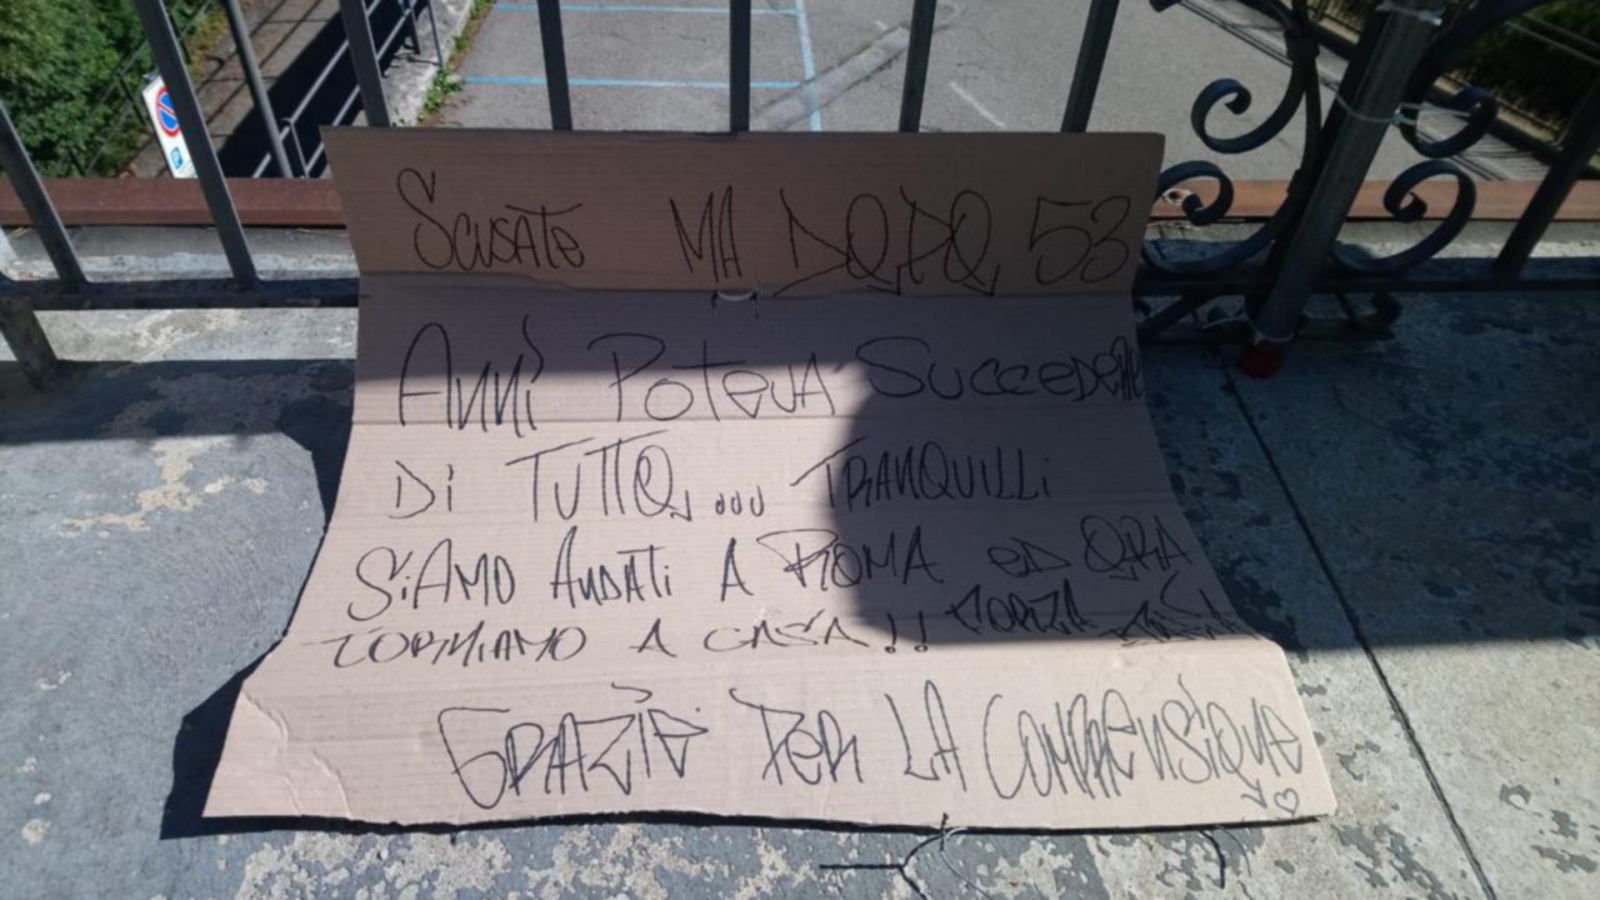 SCUSATE MA DOPO 53
ANNI POTEVA SUCCEDERE
DI TUTTO, ... TRANQUILLI
SIAMO ANDATI A ROMA ED ORA
TORNIAMO A CASA!! FORZA
GRAZIE PER LA COMPRENSIONE